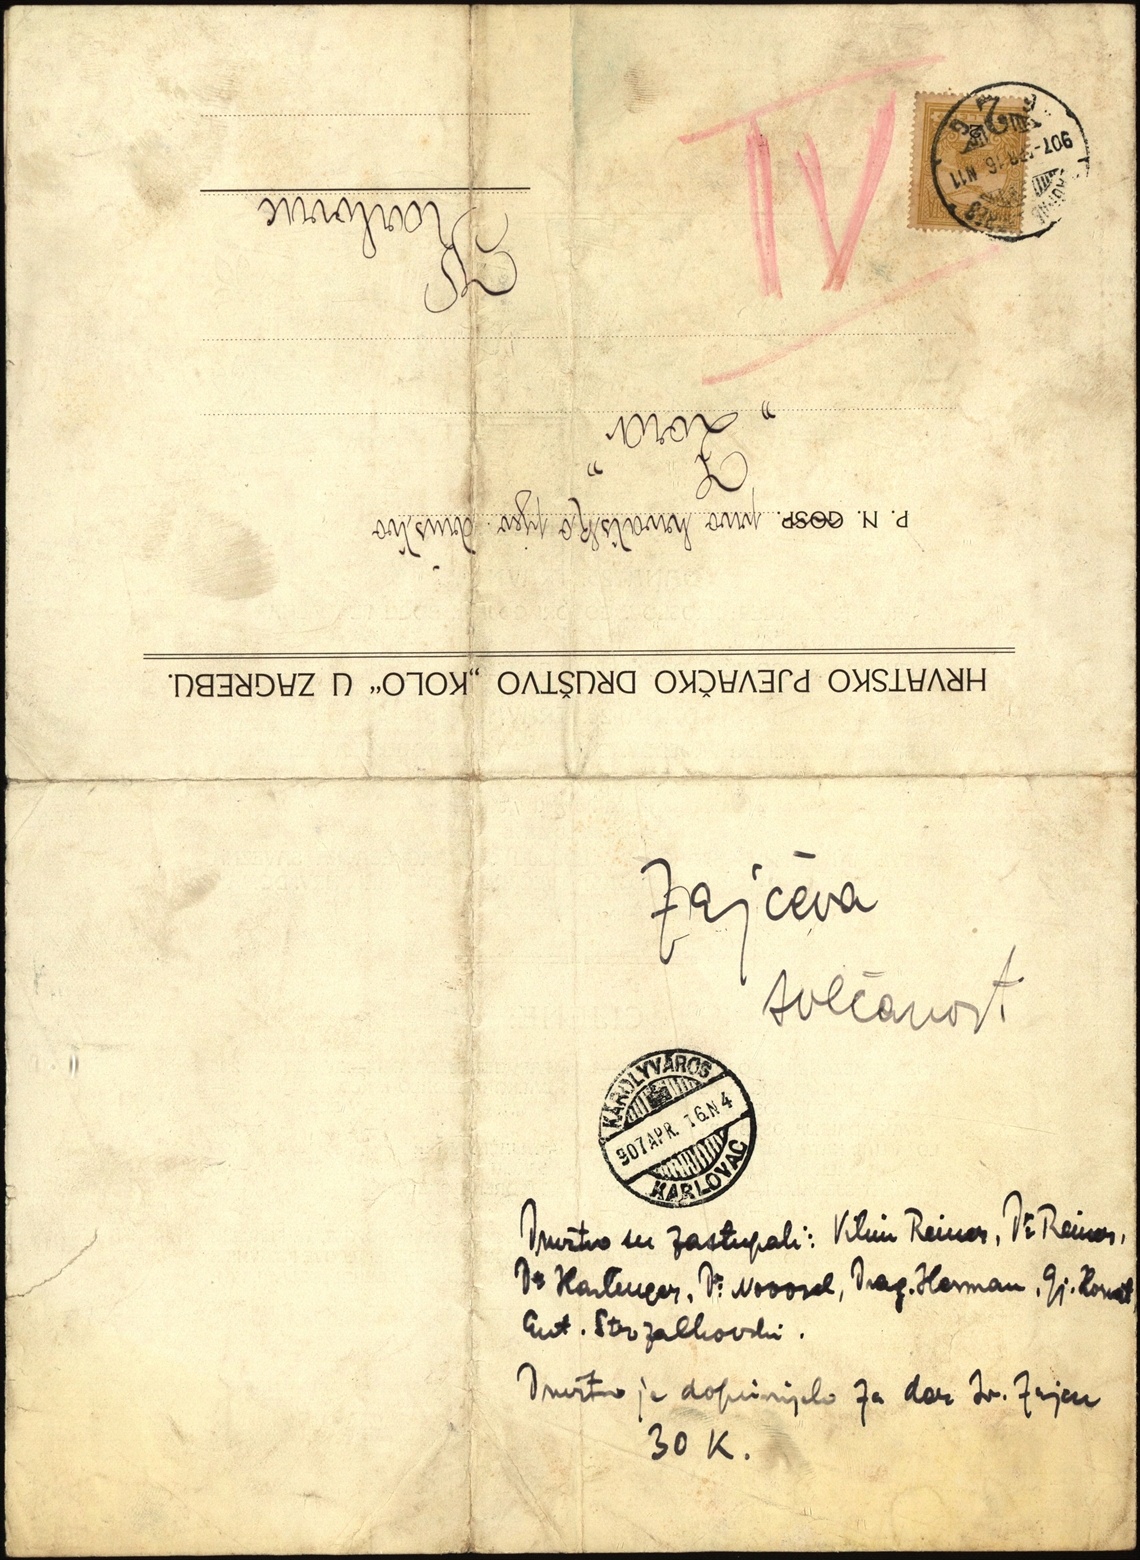 HRVATSKO PJEVAČKO DRUŠTVO „KOLO“ U ZAGREBU.
P. N. GOSP. prvo hrvatsko pjev. društvo
„Zora“
Karlovac
IV
907 APR. 16 N11
Zajčeva
svečanost
KÁROLYVÁROS
907 APR. 16. N4
KARLOVAC
Društvo su zastupali: Vilim Reiner, Dr Reiner,
Dr. Novosel, Drag. Herman, Gj.
Ant. Strzalkovski.
Društvo je doprinijelo za dar Iv. Zajcu
30 K.